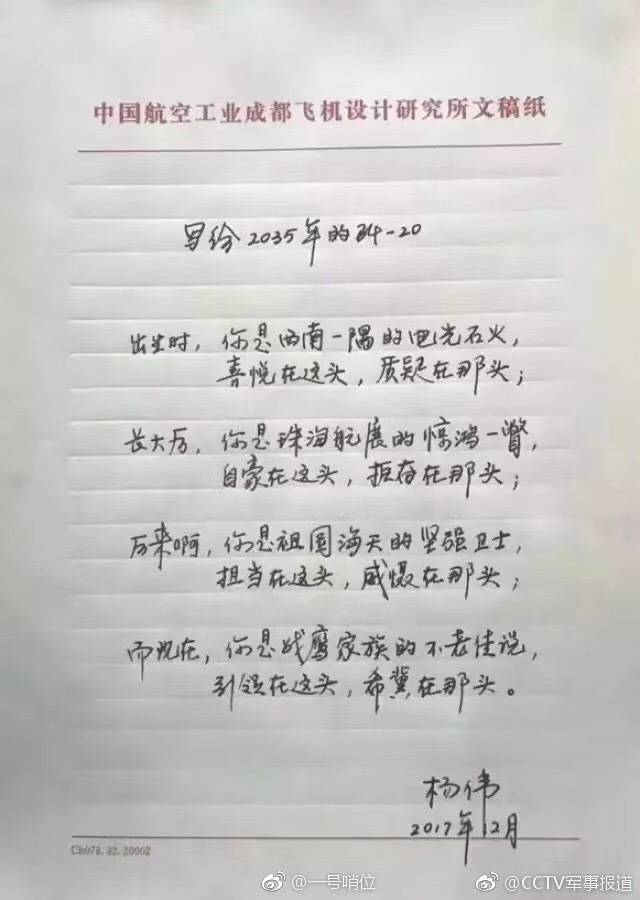 中国航空工业成都飞机设计研究所文稿纸
写给2035年的歼-20
出生时，你是西南一隅的电光石火，
喜悦在这头，质疑在那头；
长大后，你是珠海航展的惊鸿一瞥，
自豪在这头，在那头；
后来啊，你是祖国海天的坚强卫士，
担当在这头，威慑在那头；
而现在，你是战鹰家族的不老传说，
引领在这头，希冀在那头。
杨伟
2017年12月
Ch078.32.20002
@一号哨位
@CCTV军事报道